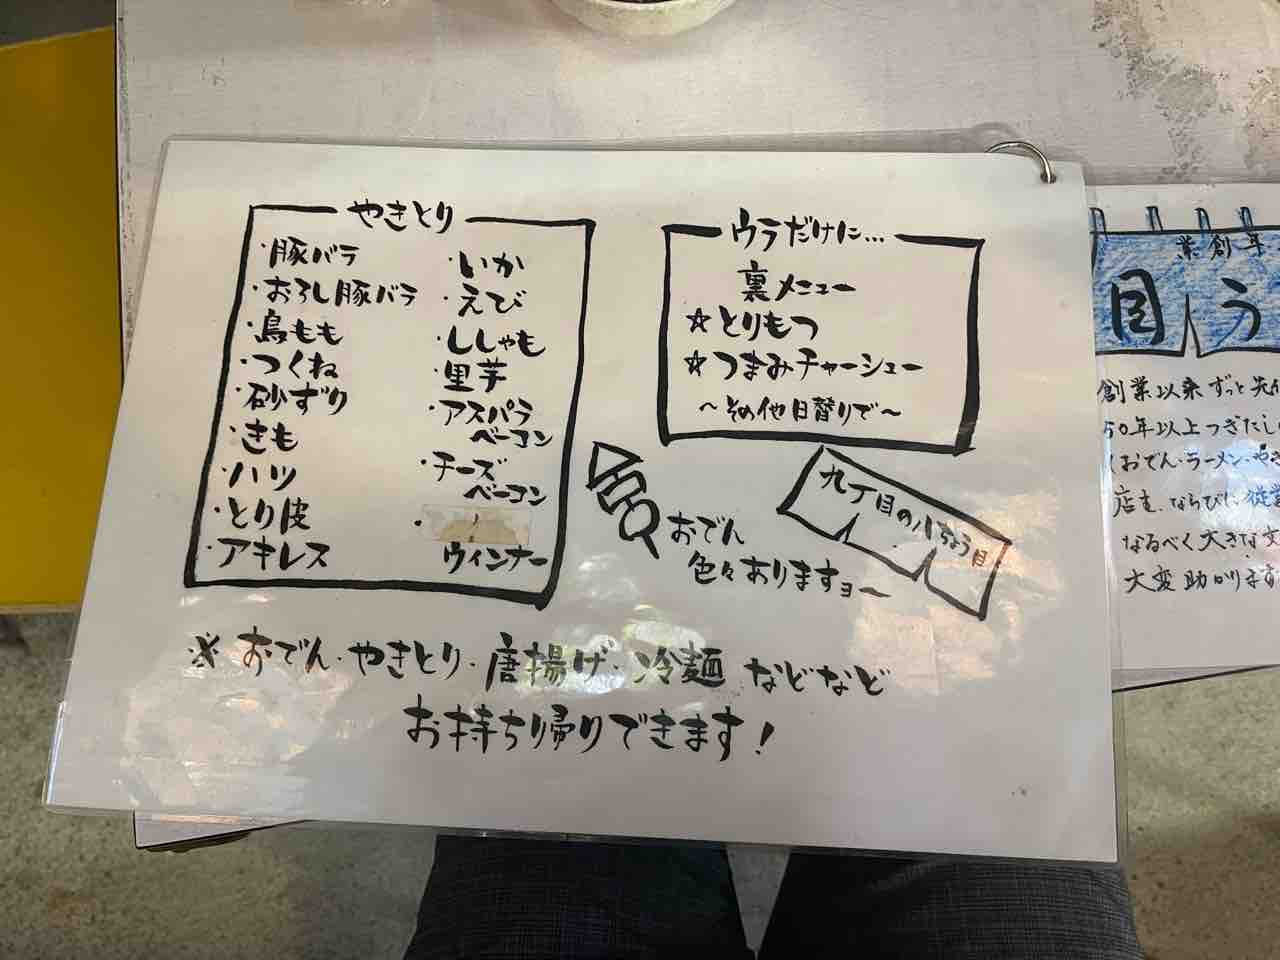 やきとり
・豚バラ
・おろし豚バラ
・鳥もも
・つくね
・砂ずり
・きも
・ハツ
・とり皮
・アキレス
・いか
・えび
・ししゃも
・里芋
・アスパラ
ベーコン
・チーズ
ベーコン
・
ウィンナー
ウラだけに…
裏メニュー
☆とりもつ
☆つまみチャーシュー
〜その他日替りで〜
おでん
色々ありますョ〜
九丁目の八ちょう目
※おでん・やきとり・唐揚げ・冷麺 などなど
お持ち帰りできます!
業創
目う
創業以来ずっと先
50年以上つぎたし
おでん・ラーメン・やき
店を、ならびに
なるべく大きな
大変助かります